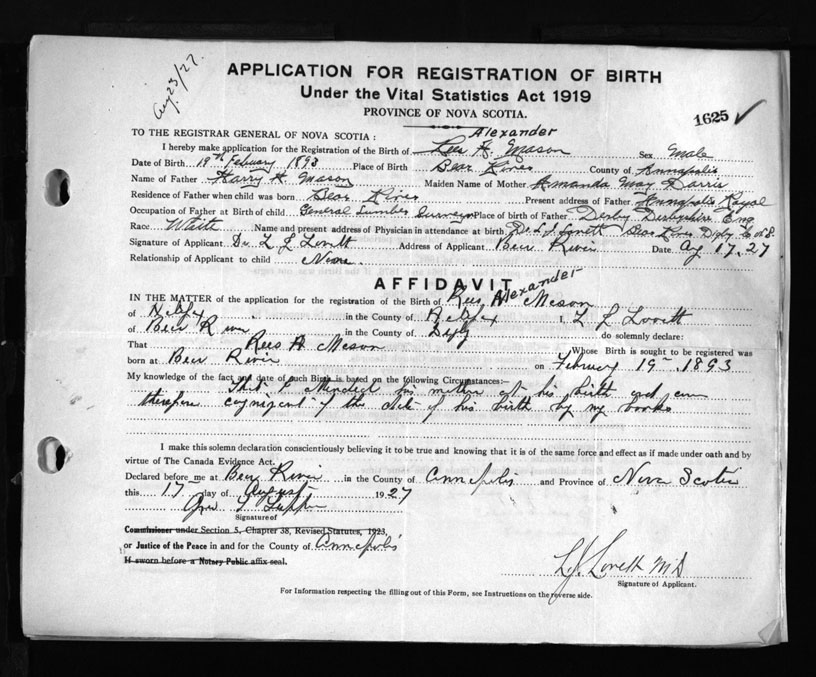 Aug 23/27.
APPLICATION FOR REGISTRATION OF BIRTH
Under the Vital Statistics Act 1919
PROVINCE OF NOVA SCOTIA.
1625
TO THE REGISTRAR GENERAL OF NOVA SCOTIA :
Alexander
I hereby make application for the Registration of the Birth of Rees A. Mason Sex Male
Date of Birth 19th February 1893 Place of Birth Bear River County of Annapolis
Name of Father Harry A. Mason Maiden Name of Mother Amanda May Harris
Residence of Father when child was born Bear River Present address of Father Annapolis Royal
Occupation of Father at Birth of child General Lumber Surveyor Place of Birth of Father Derby Derbyshire Eng
Race White Name and present address of Physician in attendance at birth Dr L. J. Lovett Bear River Digby Co N.S.
Signature of Applicant Dr. L J Lovett Address of Applicant Bear River Date Ag 17, 27
Relationship of Applicant to child None
AFFIDAVIT
Alexander
IN THE MATTER of the application for the registration of the Birth of Rees A Mason
of Halifax in the County of Halifax I, L J Lovett
of Bear River in the County of Digby do solemnly declare:
That Rees A Mason Whose Birth is sought to be registered was
born at Bear River on February 19th 1893
My knowledge of the fact and date of such Birth is based on the following Circumstances:—
That I attended his mother at his birth and am
therefore cognizant of the date of his birth by my books
I make this solemn declaration conscientiously believing it to be true and knowing that it is of the same force and effect as if made under oath and by
virtue of The Canada Evidence Act.
Declared before me at Bear River in the County of Annapolis and Province of Nova Scotia
this 17 day of August 1927
Signature of
Commissioner under Section 5, Chapter 38, Revised Statutes, 1923,
or Justice of the Peace in and for the County of Annapolis
If sworn before a Notary Public affix seal.
L.J. Lovett MD
Signature of Applicant.
For Information respecting the filling out of this Form, see Instructions on the reverse side.